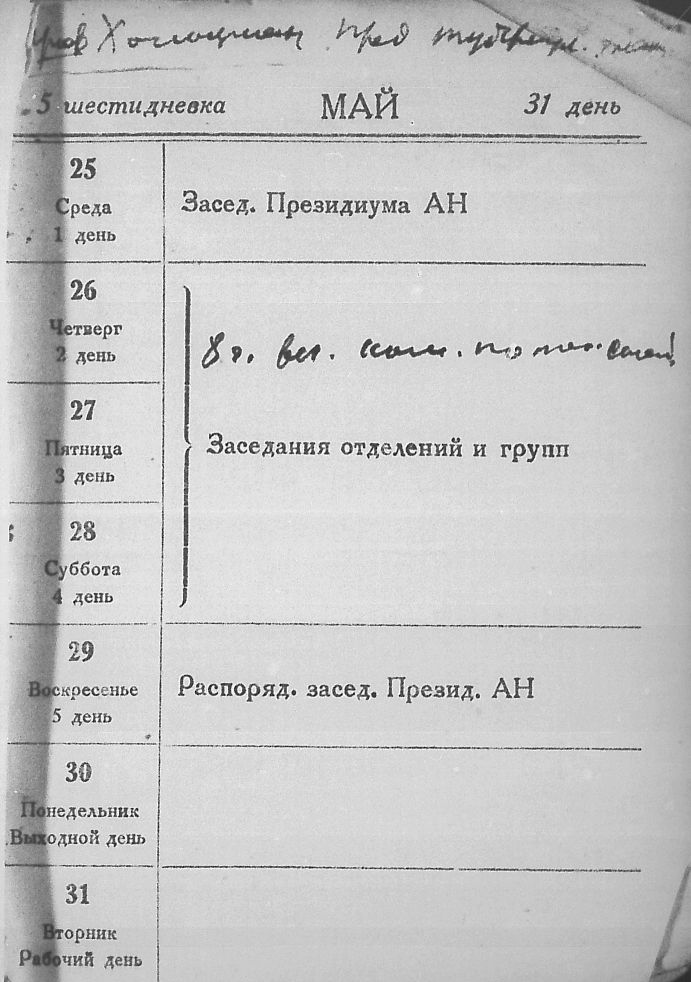 5 шестидневка МАЙ 31 день
25
Среда
1 день
Засед. Президиума АН
26
Четверг
2 день
8 ч. веч.
27
Пятница
3 день
Заседания отделений и групп
28
Суббота
4 день
29
Воскресенье
5 день
Распоряд. засед. Презид. АН
30
Понедельник
Выходной день
31
Вторник
Рабочий день